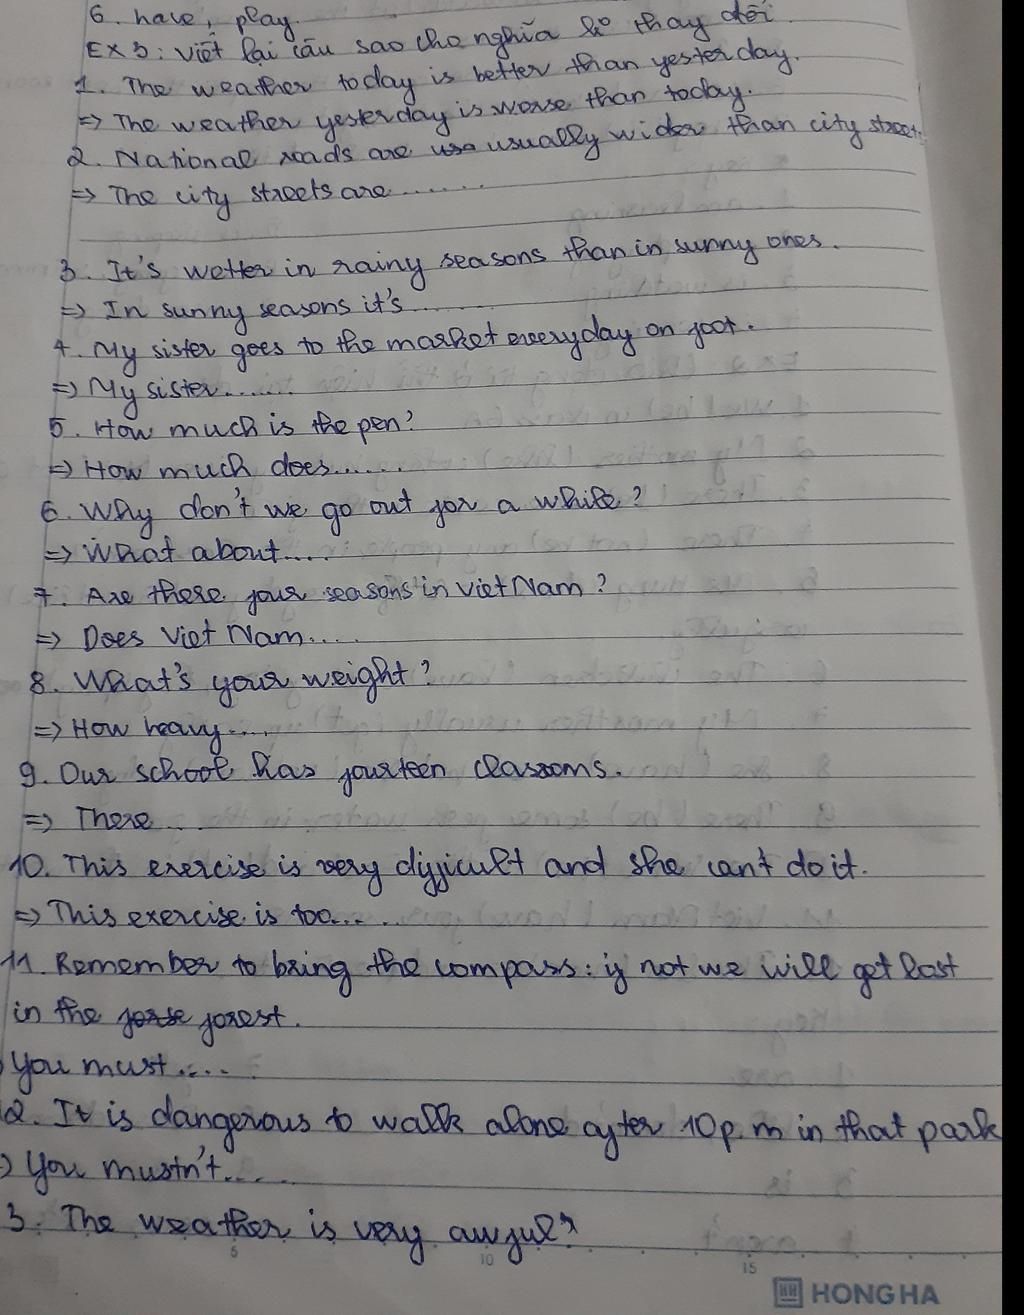 6. have, play.
EX 3: Viết lại câu sao cho nghĩa ko thay đổi
1. The weather today is better than yesterday.
=> The weather yesterday is worse than today.
2. National roads are usually wider than city street.
=> The city streets are.......
3. It's wetter in rainy seasons than in sunny ones.
=> In sunny seasons it's.......
4. My sister goes to the market everyday on foot.
=> My sister.......
5. How much is the pen?
=> How much does......
6. Why don't we go out for a while?
=> What about....
7. Are there four seasons in Viet Nam?
=> Does Viet Nam....
8. What's your weight?
=> How heavy....
9. Our school has fourteen classooms.
=> There....
10. This exercise is very difficult and she can't do it.
=> This exercise is too......
11. Remember to bring the compass: if not we will get lost
in the forest.
You must....
2. It is dangerous to walk alone after 10p.m in that park
=> You mustn't.....
3. The weather is very awful?
5 10 15
HONG HA